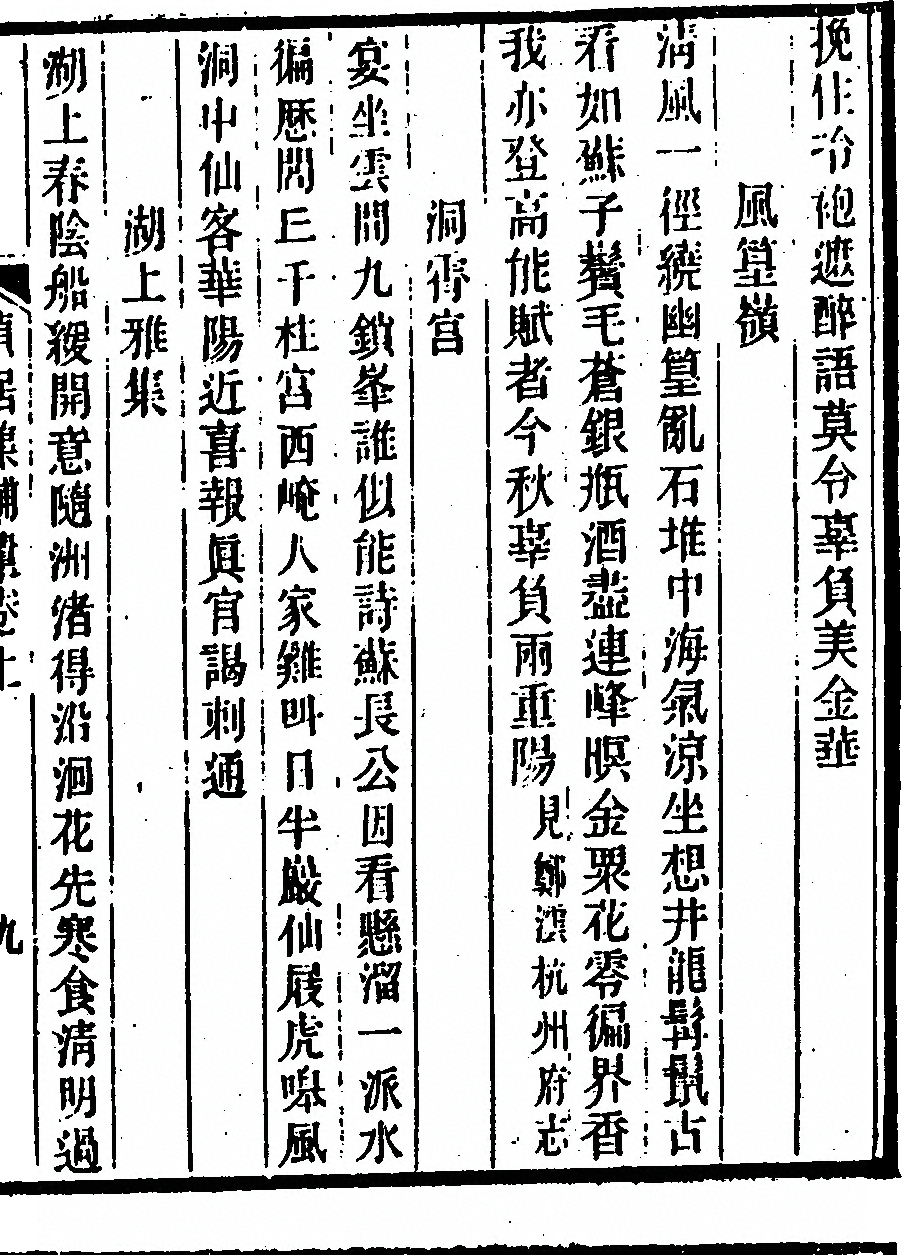 挽住冶袍遮醉語莫令辜負美金葉
風篁嶺
清風一徑繞幽篁亂石堆中海氣涼坐想井龍髯鬣古
看如蘇子鬢毛蒼銀瓶酒盡連峰暝金粟花零徧界香
我亦登高能賦者今秋辜負兩重陽見鄭澐杭州府志
洞霄宮
宴坐雲間九鎖峯誰似能詩蘇長公因看懸溜一派水
徧歷閒三千柱宮西崦人家雞叫日半巖仙屐虎嗥風
洞中仙客華陽近喜報眞官謁刺通
湖上雅集
湖上春陰船緩開意隨洲渚得沿洄花先寒食清明過
貞居集補遺卷上
九